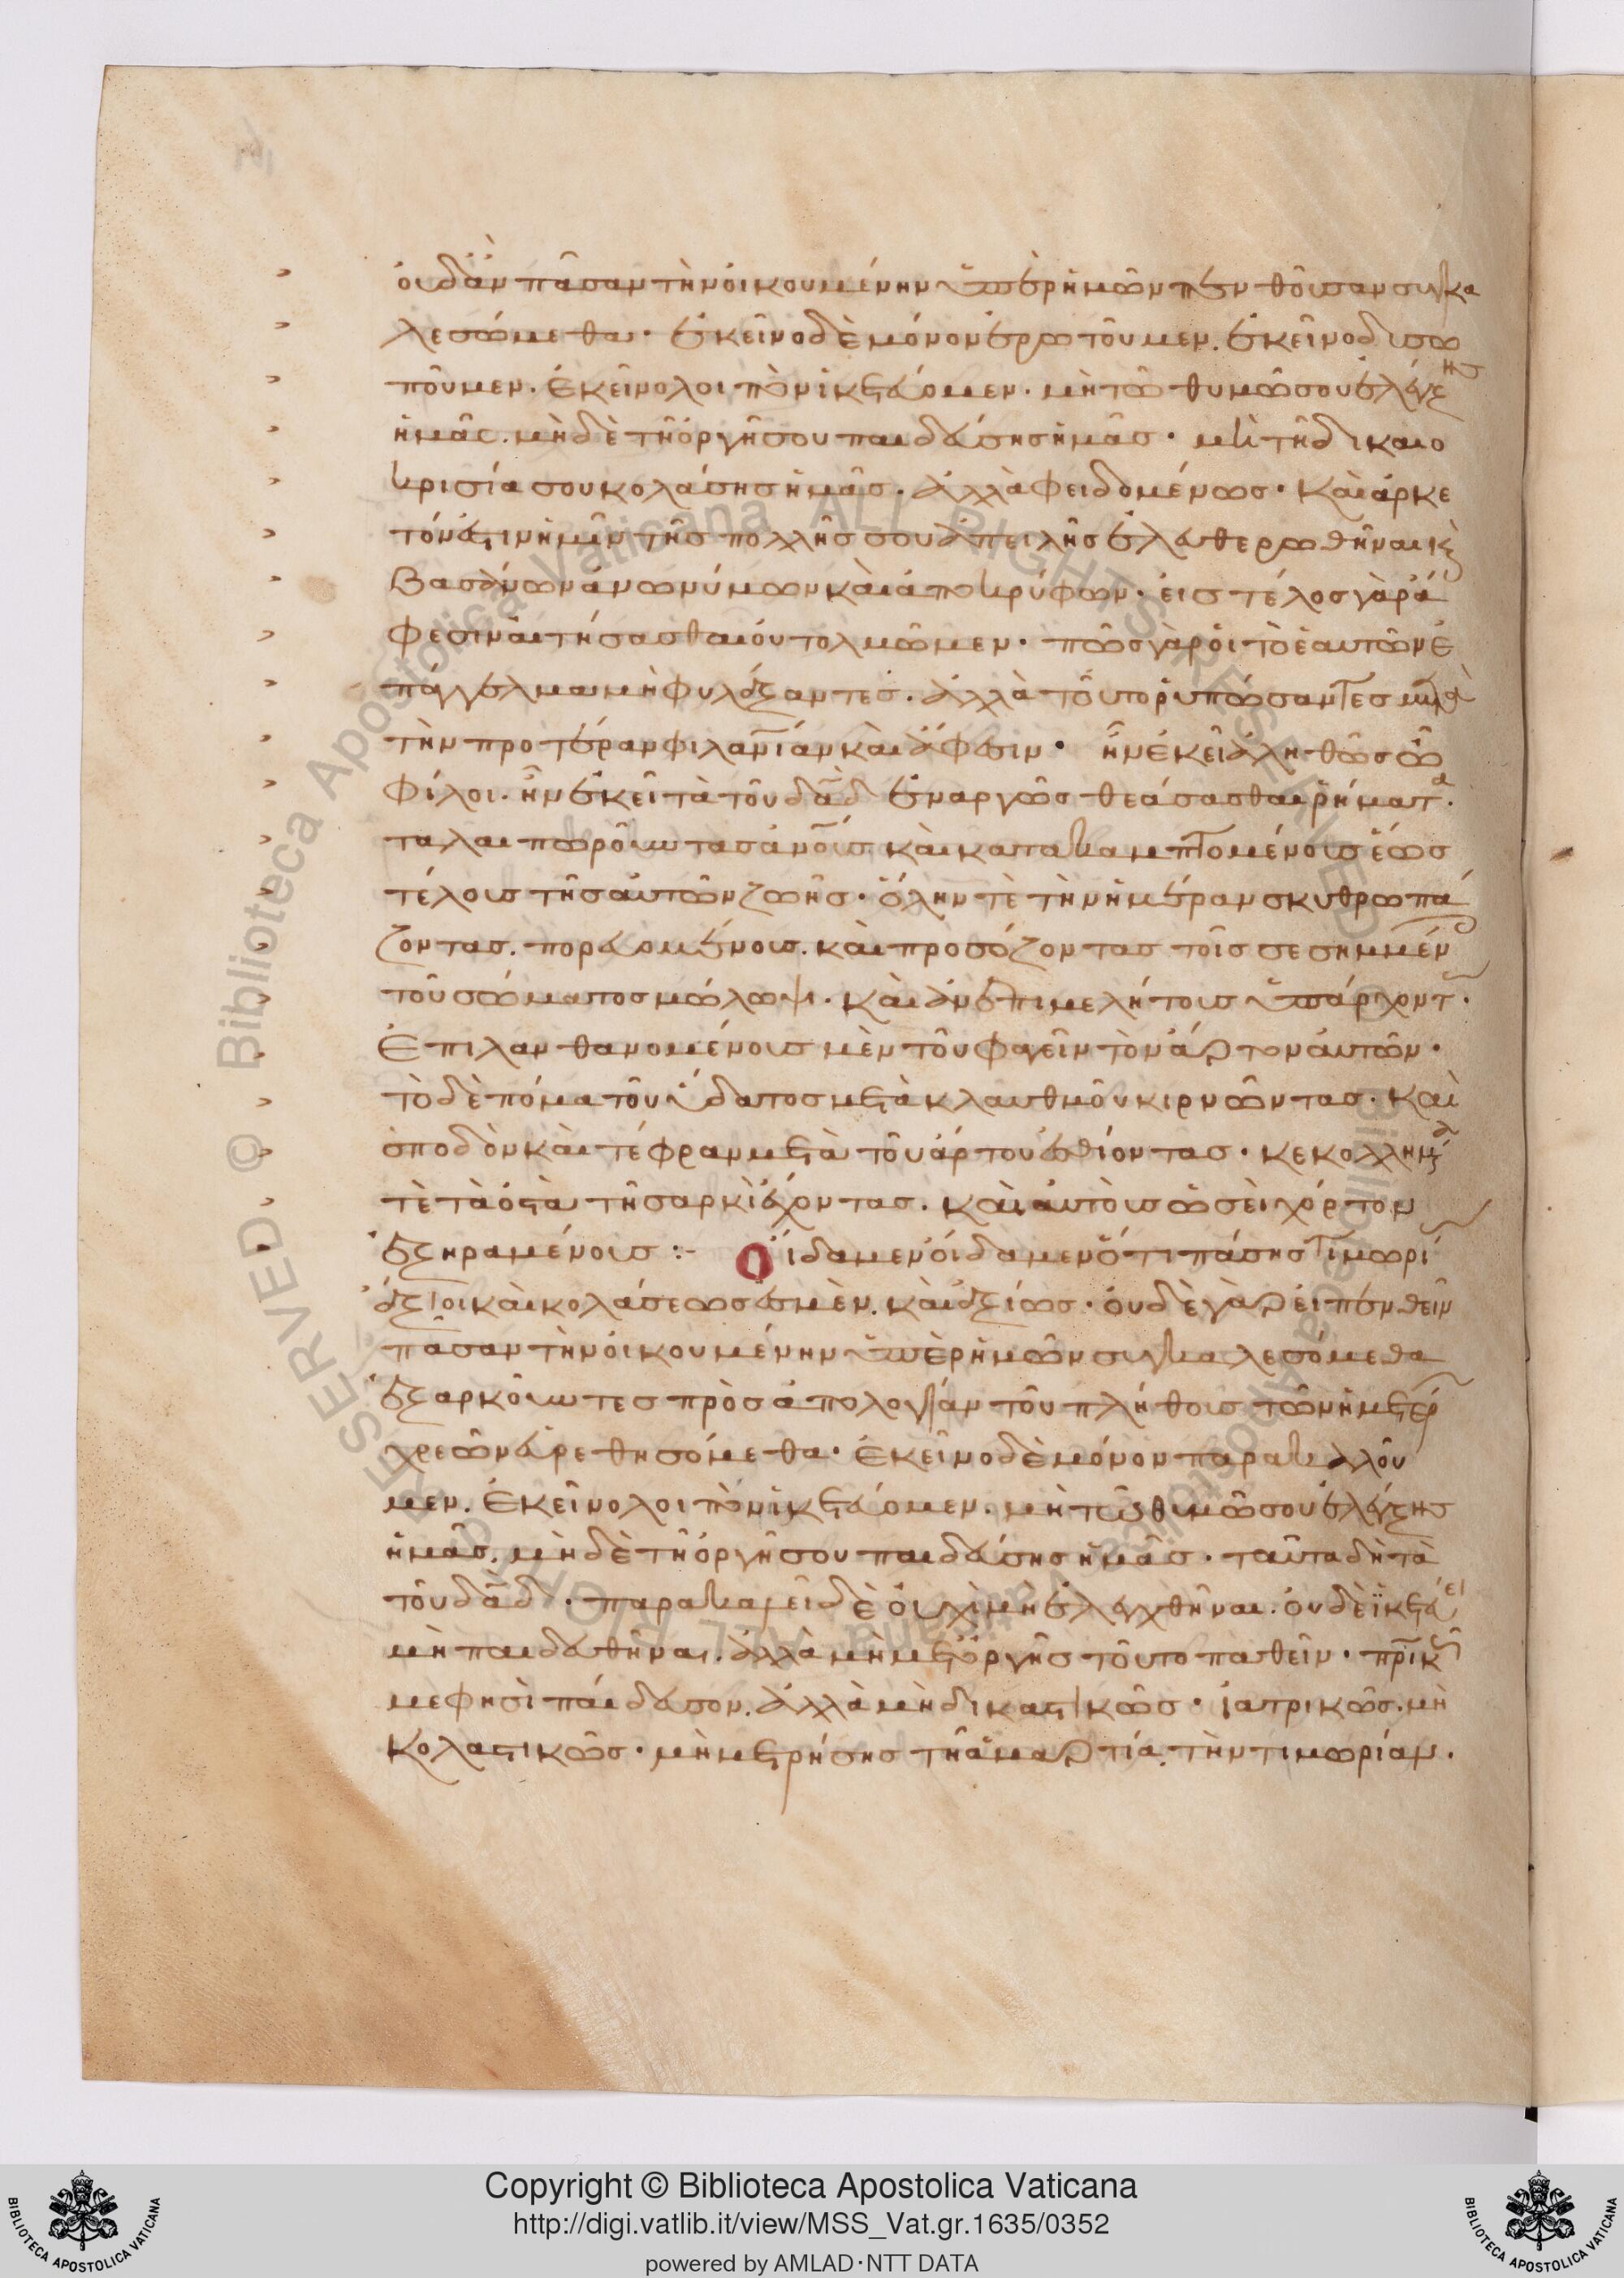 οὐδ' ἂν πᾶσαν τὴν οἰκουμένην ὑπὲρ ἡμῶν πενθοῦσαν συγκα
λεσώμεθα· ἐκεῖνο δὲ μόνον ἐρωτοῦμεν. ἐκεῖνο δυσω
ποῦμεν. ἐκεῖνο λοιπὸν ἱκετεύομεν. μὴ τῶ θυμῶ σου ἐλέγξης
ἡμᾶς. μὴ δὲ τῆ ὀργῆ σου παιδεύσης ἡμᾶς· μὴ τῆ δικαιο
κρισία σου κολάσης ἡμᾶς. ἀλλὰ φειδομένως· καὶ ἀρκε
τόν ἐστιν ἡμῖν τῆς πολλῆς σου ἀπειλῆς ἐλευθερωθῆναι κ(αὶ)
βασάνων ἀνωνύμων καὶ ἀποκρύφων· εἰς τέλος γὰρ ἄ
φεσιν αἰτήσασθαι οὐ τολμῶμεν· πῶς γὰρ οἱ τὸ ἑαυτῶν ἐ
πάγγελμα μὴ φυλάξαντες. ἀλλὰ τοῦτο ῥυπώσαντες μετὰ
τὴν προτέραν φιλαν(θρωπ)ίαν καὶ ἄφεσιν· ἦν ἐκεῖ ἀληθῶς ὦ
φίλοι. ἦν ἐκεῖ τὰ τοῦ δα(υὶ)δ ἐναργῶς θεάσασθαι ῥήματα.
ταλαιπωροῦντας ἀν(θρώπ)ους καὶ κατακαμπτομένους ἕως
τέλους τῆς αὐτῶν ζωῆς· ὅλην τὲ τὴν ἡμέραν σκυθρωπά
ζοντας. πορευομένους. καὶ προσόζοντας τοῖς σεσημμέν(οις)
τοῦ σώματος μώλωψι. καὶ ἀνεπιμελήτους ὑπάρχοντ(ας).
ἐπιλανθανομένους μὲν τοῦ φαγεῖν τὸν ἄρτον αὐτῶν·
τὸ δὲ πόμα τοῦ ὕδατος μετὰ κλαυθμοῦ κιρνῶντας. καὶ
σποδὸν καὶ τέφραν μετὰ τοῦ ἄρτου ἐσθίοντας· κεκολλημ(έν)α
τὲ τὰ ὀστὰ τῆ σαρκὶ ἔχοντας. καὶ αὐτοὺς ὡσεὶ χόρτον
ἐξηραμένους :- Οἴδαμεν οἴδαμεν ὅτι πάσης τιμωρί(ας)
ἄξιοι καὶ κολάσεως ἐσμὲν. καὶ ἀξίως· οὐδὲ γὰρ εἰ πενθεῖν
πᾶσαν τὴν οἰκουμένην ὑπὲρ ἡμῶν συγκαλεσόμεθα
ἐξαρκοῦντες πρὸς ἀπολογίαν τοῦ πλήθους τῶν ἡμετέρ(ων)
χρεῶν εὑρεθησόμεθα· ἐκεῖνο δὲ μόνον παρακαλοῦ
μεν. ἐκεῖνο λοιπὸν ἱκετεύομεν. μὴ τῶ θυμῶ σου ἐλέγξης
ἡμᾶς. μὴ δὲ τῆ ὀργῆ σου παιδεύσης ἡμᾶς· ταῦτα δὴ τὰ
τοῦ δα(υὶ)δ· παρακαλεῖ δὲ οὐχὶ μὴ ἐλεγχθῆναι. οὐδὲ ἱκετεύει
μὴ παιδευθῆναι. ἀλλὰ μὴ μετ' ὀργῆς τοῦτο παθεῖν· π(ατ)ρικῶ(ς)
με φησὶ παίδευσον. ἀλλὰ μὴ δικαστικῶς· ἰατρικῶς. μὴ
κολαστικῶς· μὴ μετρήσης τῆ ἁμαρτία τὴν τιμωρίαν.
Copyright © Biblioteca Apostolica Vaticana
http://digi.vatlib.it/view/MSS_Vat.gr.1635/0352
powered by AMLAD·NTT DATA